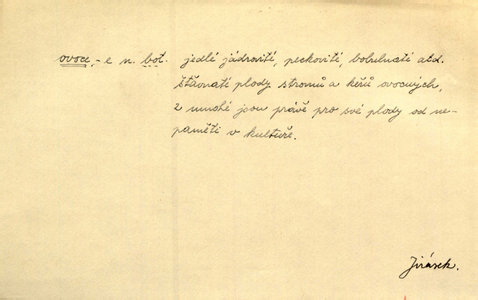 ovoce, -e n. bot. jedlé jádrovité, peckovité, bobulnaté atd.
šťavnaté plody stromů a keřů ovocných,
z mnohé jsou právě pro své plody od ne-
paměti v kultuře.
Jirásek.